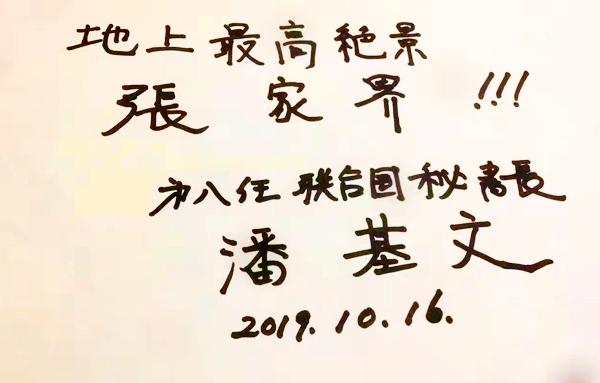 地上最高絶景
張家界 !!!
第八任 联合国秘書長
潘基文
2019.10.16.